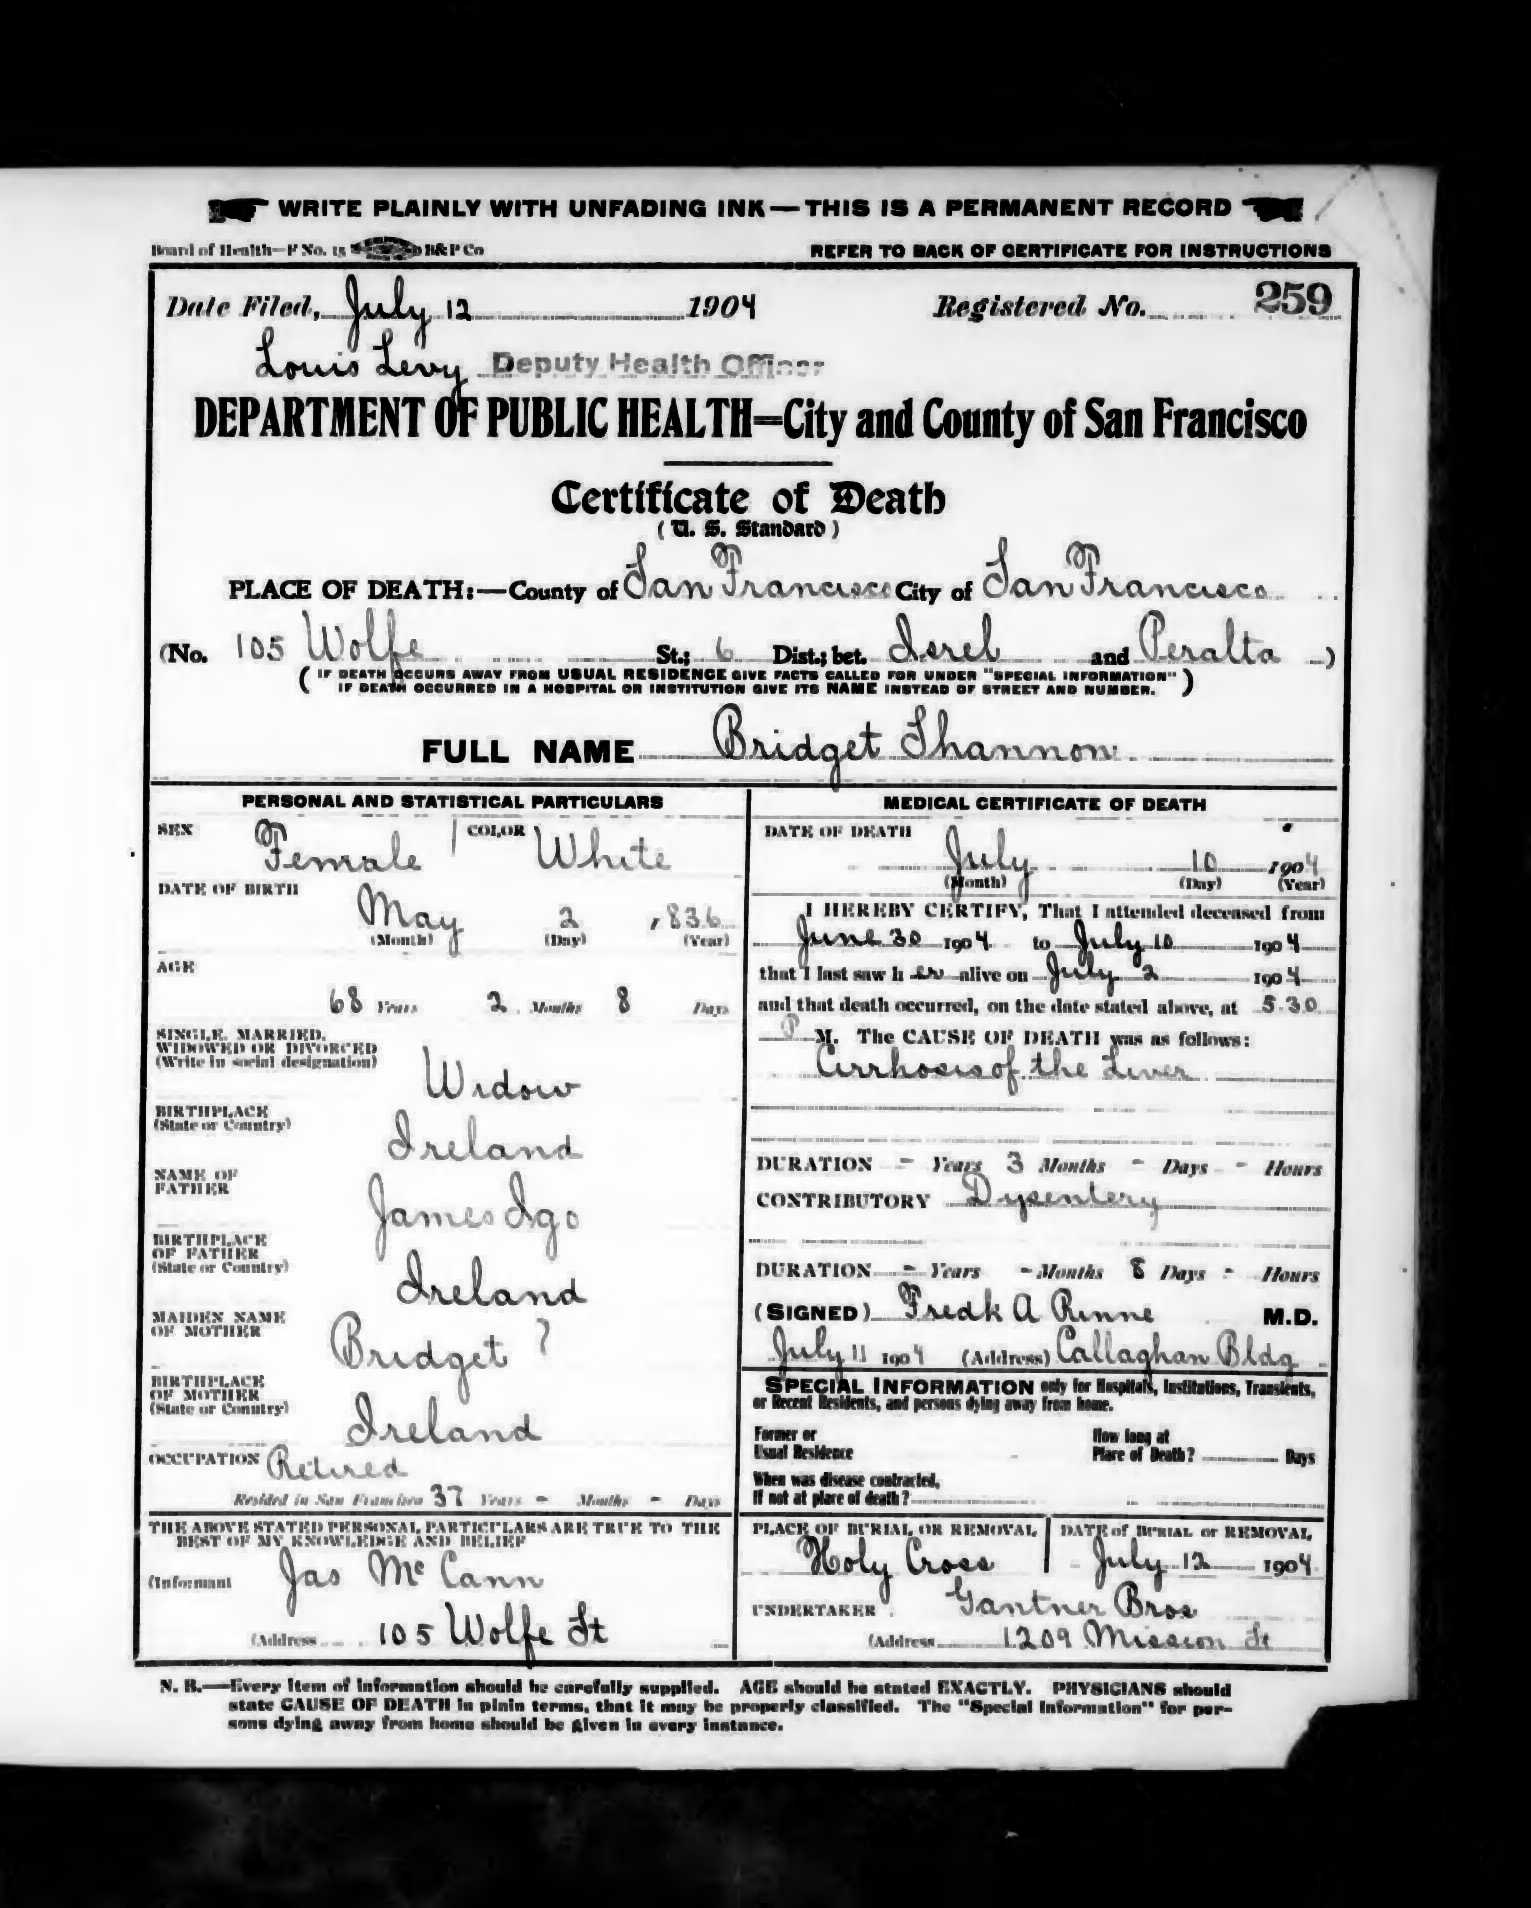 WRITE PLAINLY WITH UNFADING INK—THIS IS A PERMANENT RECORD
Board of Health—F No. 15 H&P Co REFER TO BACK OF CERTIFICATE FOR INSTRUCTIONS
Date Filed, July 12 1904 Registered No. 259
Louis Levy Deputy Health Officer
DEPARTMENT OF PUBLIC HEALTH=City and County of San Francisco
Certificate of Death
(U. S. Standard)
PLACE OF DEATH:—County of San Francisco City of San Francisco
(No. 105 Wolfe St.; 6 Dist.; bet. Isrel and Peralta )
( IF DEATH OCCURS AWAY FROM USUAL RESIDENCE GIVE FACTS CALLED FOR UNDER "SPECIAL INFORMATION"
IF DEATH OCCURRED IN A HOSPITAL OR INSTITUTION GIVE ITS NAME INSTEAD OF STREET AND NUMBER. )
FULL NAME Bridget Shannon
PERSONAL AND STATISTICAL PARTICULARS
SEX Female COLOR White
DATE OF BIRTH
May 2 , 836
(Month) (Day) (Year)
AGE
68 Years 2 Months 8 Days
SINGLE, MARRIED,
WIDOWED OR DIVORCED
(Write in social designation)
Widow
BIRTHPLACE
(State or Country)
Ireland
NAME OF
FATHER
James Igo
BIRTHPLACE
OF FATHER
(State or Country)
Ireland
MAIDEN NAME
OF MOTHER
Bridget ?
BIRTHPLACE
OF MOTHER
(State or Country)
Ireland
OCCUPATION Retired
Resided in San Francisco 37 Years - Months - Days
THE ABOVE STATED PERSONAL PARTICULARS ARE TRUE TO THE
BEST OF MY KNOWLEDGE AND BELIEF
(Informant Jas McCann
(Address 105 Wolfe St
MEDICAL CERTIFICATE OF DEATH
DATE OF DEATH
July 10 1904
(Month) (Day) (Year)
I HEREBY CERTIFY, That I attended deceased from
June 30 1904 to July 10 1904
that I last saw h er alive on July 2 1904
and that death occurred, on the date stated above, at 5.30
P M. The CAUSE OF DEATH was as follows:
Cirrhosis of the Liver
DURATION - Years 3 Months - Days - Hours
CONTRIBUTORY Dysentery
DURATION - Years - Months 8 Days - Hours
(SIGNED) Fredk A Rinne M.D.
July 11 1904 (Address) Callaghan Bldg
SPECIAL INFORMATION only for Hospitals, Institutions, Transients,
or Recent Residents, and persons dying away from home.
Former or
Usual Residence
How long at
Place of Death? Days
When was disease contracted,
If not at place of death?
PLACE OF BURIAL OR REMOVAL
Holy Cross
DATE of BURIAL or REMOVAL
July 12 1904
UNDERTAKER Gantner Bros
(Address 1209 Mission St
N. B.—Every item of information should be carefully supplied. AGE should be stated EXACTLY. PHYSICIANS should
state CAUSE OF DEATH in plain terms, that it may be properly classified. The "Special Information" for per-
sons dying away from home should be given in every instance.